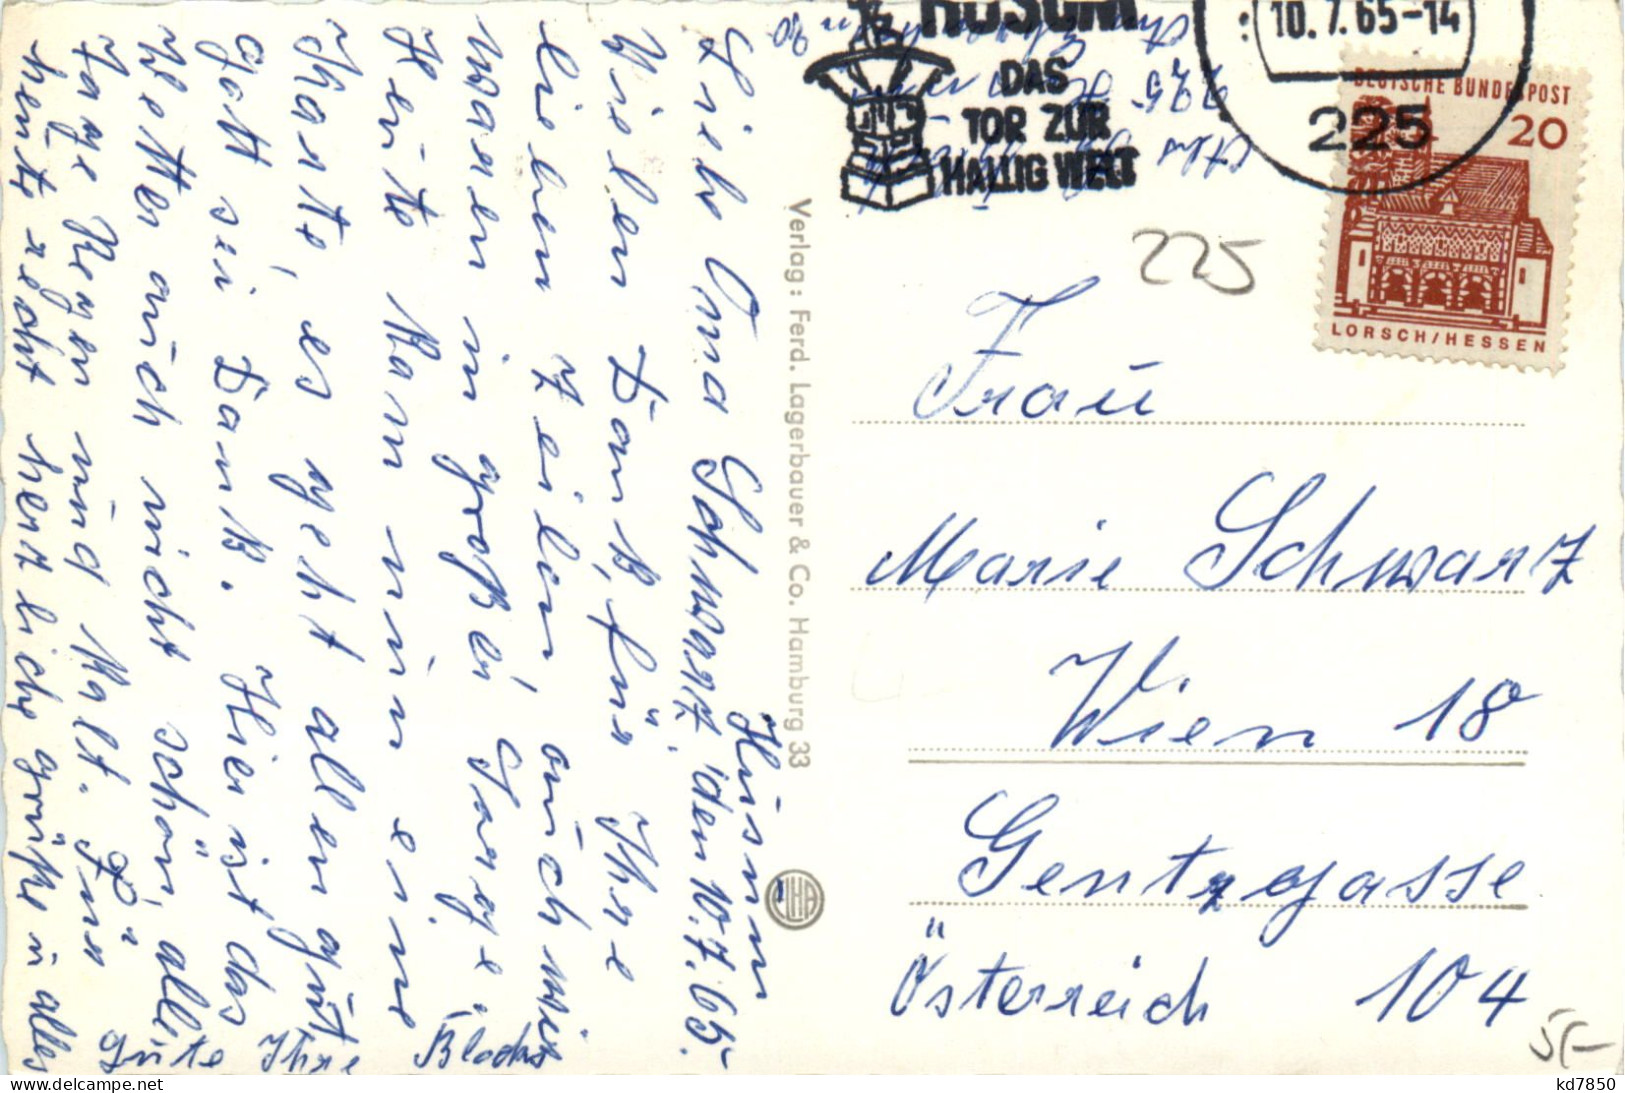 Husum
Liebe Oma Schwarz, den 10.7.65.
Vielen Dank, für Ihre
lieben Zeilen, auch wir
waren in großer Sorge.
Heute kam nun eine
Karte, es geht allen gut
Gott sei Dank. Hier ist das
Wetter auch nicht schön, alle
Tage Regen und kalt. Für
heute recht herzliche Grüße u alles
Gute Ihre
HUSUM
DAS
TOR ZUR
HALLIG WELT
10.7.65-14
225
DEUTSCHE BUNDESPOST
20
LORSCH/HESSEN
225
Verlag: Ferd. Lagerbauer & Co. Hamburg 33
Frau
Marie Schwarz
Wien 18
Gentzgasse
Österreich 104
5,-
kd7850